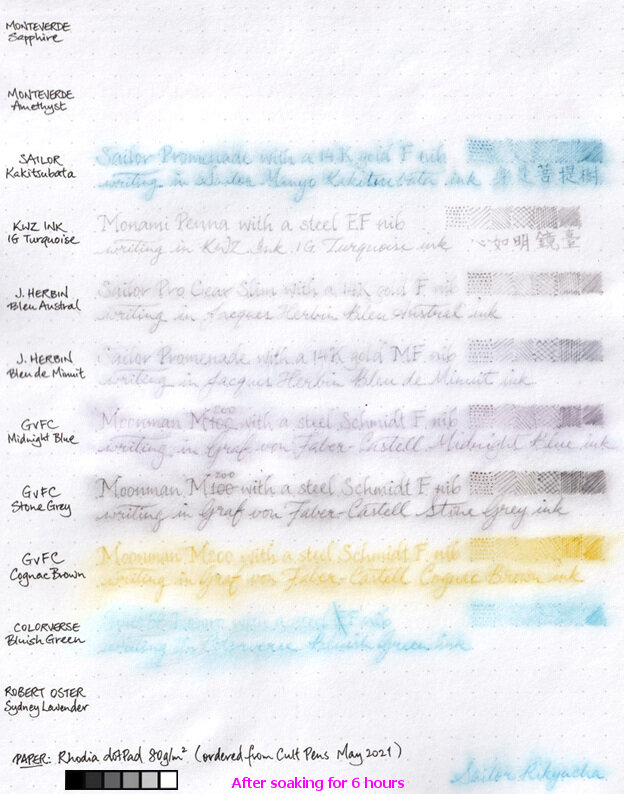 MONTEVERDE
Sapphire
MONTEVERDE
Amethyst
SAILOR
Kakitsubata
Sailor Promenade with a 14K gold F nib
writing in Sailor Manyo Kakitsubata ink 身是菩提樹
KWZ INK
IG Turquoise
Monami Penna with a steel EF nib
writing in KWZ Ink IG Turquoise ink 心如明鏡臺
J. HERBIN
Bleu Austral
Sailor Pro Gear Slim with a 14K gold F nib
writing in Jacques Herbin Bleu Austral ink
J. HERBIN
Bleu de Minuit
Sailor Promenade with a 14K gold MF nib
writing in Jacques Herbin Bleu de Minuit ink
GvFC
Midnight Blue
200
Moonman M100 with a steel Schmidt F nib
writing in Graf von Faber-Castell Midnight Blue ink
GvFC
Stone Grey
200
Moonman M100 with a steel Schmidt F nib
writing in Graf von Faber-Castell Stone Grey ink
GvFC
Cognac Brown
Moonman M200 with a steel Schmidt F nib
writing in Graf von Faber-Castell Cognac Brown ink
COLORVERSE
Bluish Green
with a steel F nib
writing in Colorverse Bluish Green ink
ROBERT OSTER
Sydney Lavender
PAPER: Rhodia dotPad 80g/m² (ordered from Cult Pens May 2021)
Sailor Rikyucha
After soaking for 6 hours